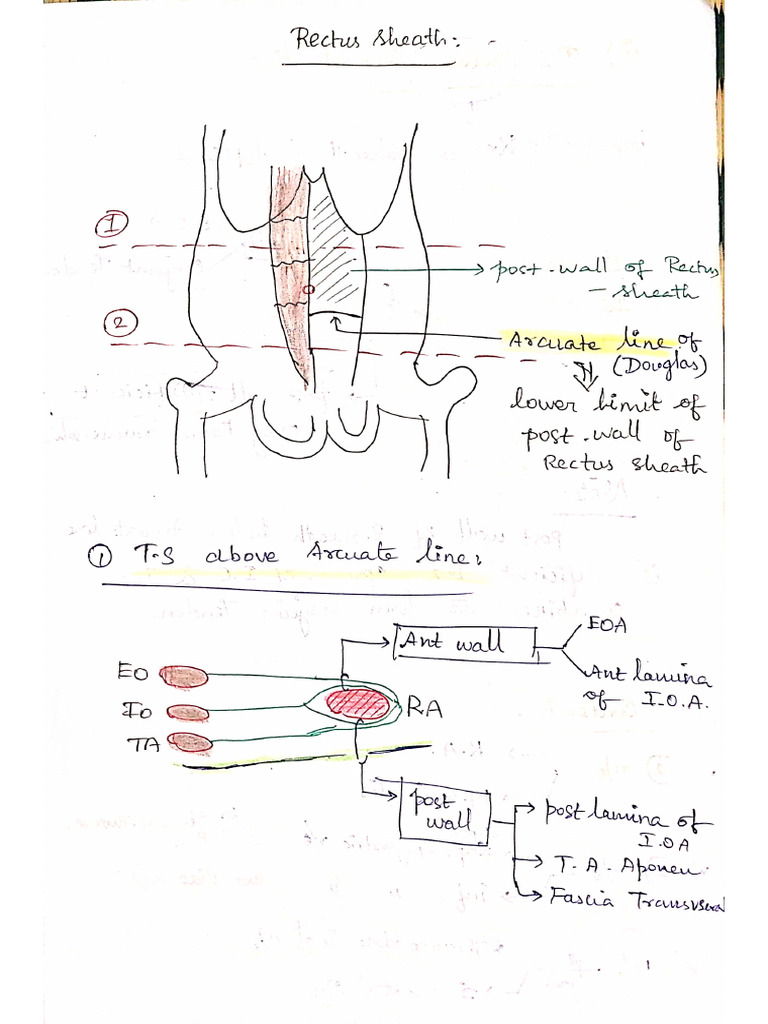 Rectus sheath: -
①
post-wall of Rectus
- sheath
②
Arcuate line of
(Douglas)
lower limit of
post-wall of
Rectus sheath
① T.S above Arcuate line:
Ant wall
EOA
Ant lamina
of I.O.A.
EO
IO
TA
RA
post
wall
post lamina of
I.OA
T.A. Aponeu
Fascia